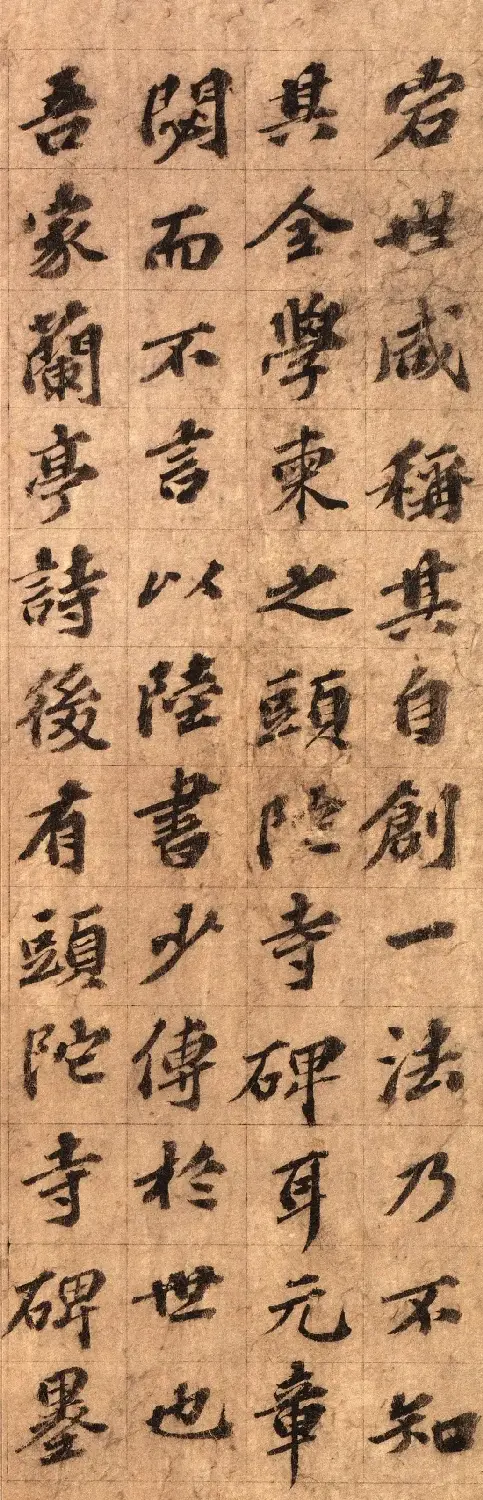 世咸稱其自創一法乃不知
其全學柬之頭陁寺碑耳元章
閟而不言以陸書少傳於世也
吾家蘭亭詩後有頭陀寺碑墨